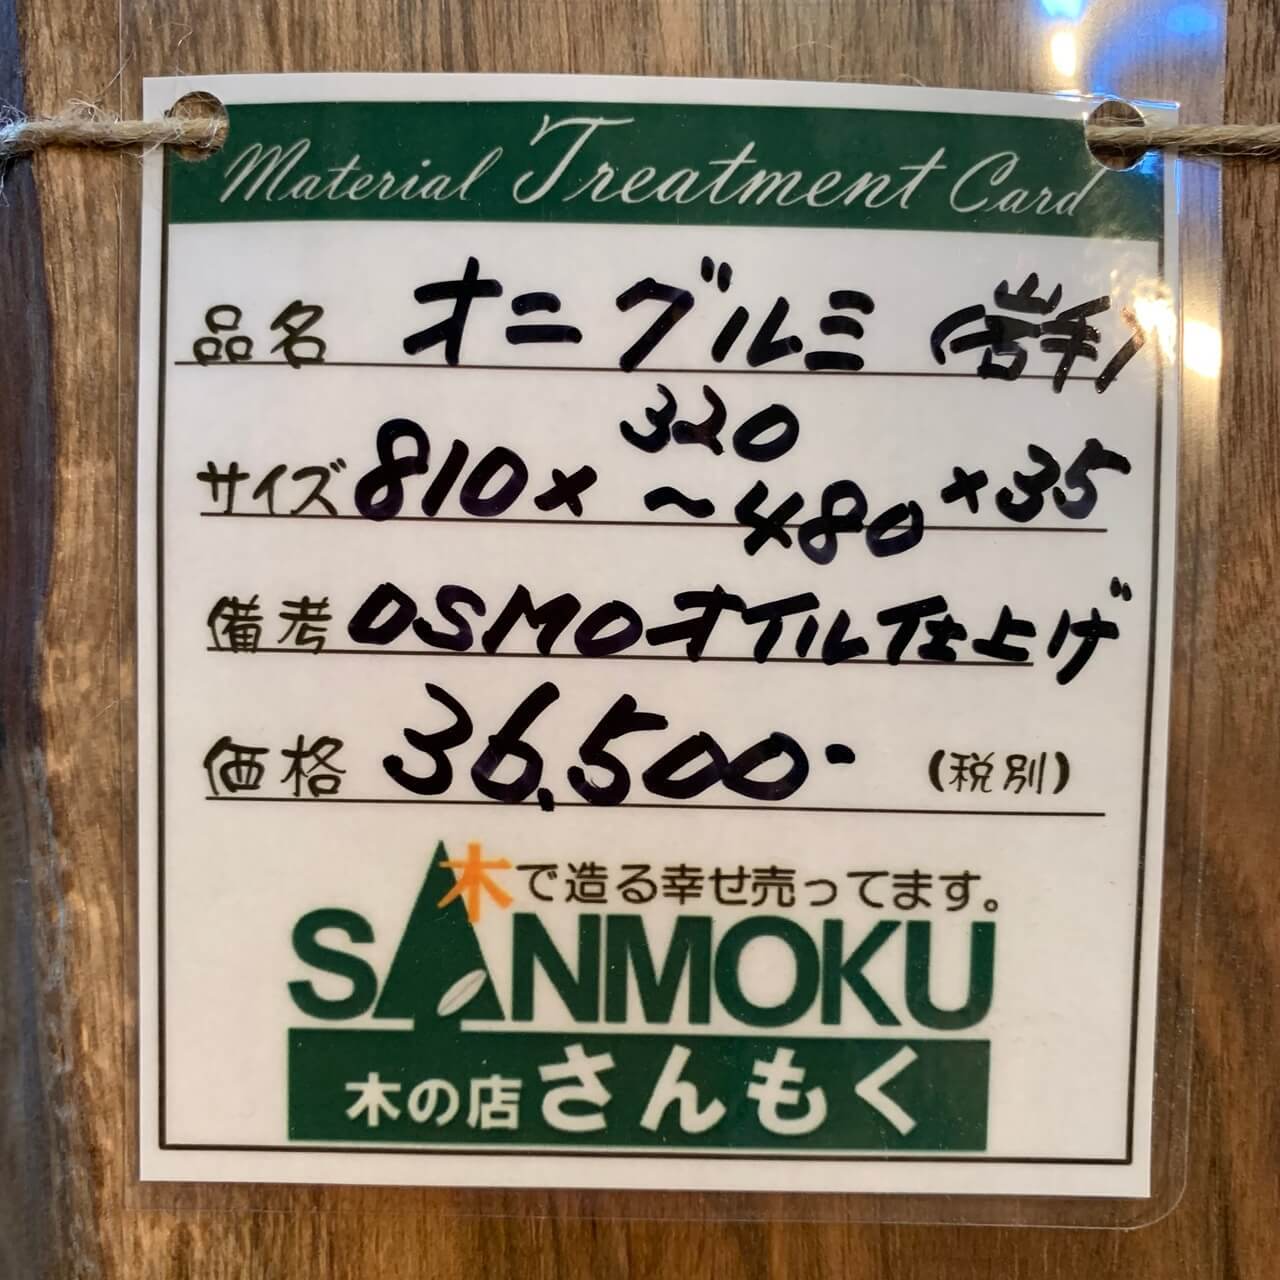 Material Treatment Card
品名 オニグルミ (岩手)
サイズ 810 × 320 ~ 480 × 35
備考 OSMOオイル仕上げ
価格 36,500- (税別)
木で造る幸せ売ってます。
SANMOKU
木の店 さんもく